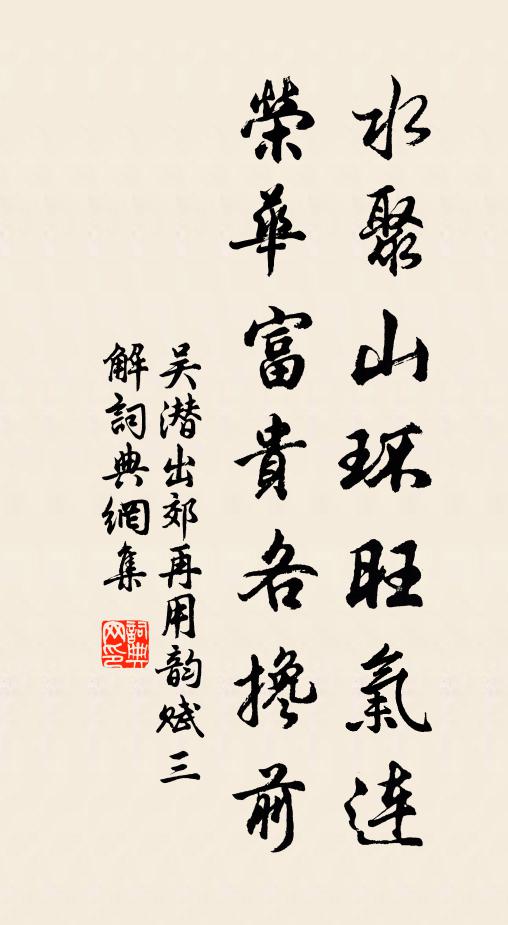 水聚山环旺氣连
榮華富貴各搀前
吴潜出郊再用韵赋三
解詞典網集
詞典网印